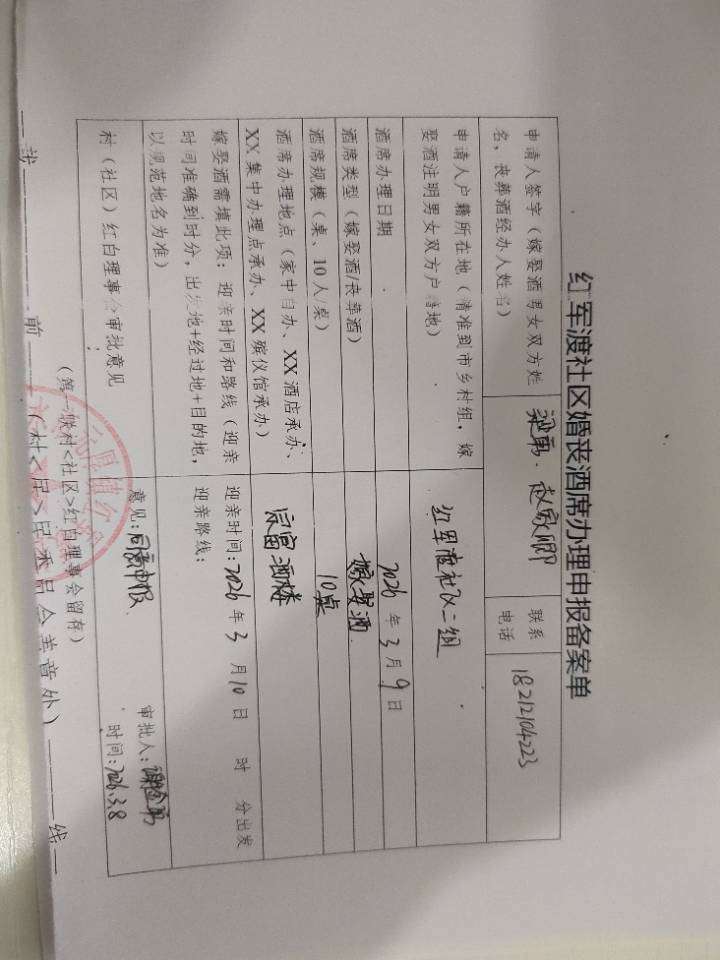 红军渡社区婚丧酒席办理申报备案单
申请人签字（嫁娶酒男女双方姓名，丧葬酒经办人姓名） 梁勇、赵敏卿 联系电话 18212104223
申请人户籍所在地（请准到市乡村组，嫁娶酒注明男女双方户籍地） 红军渡社区二组
酒席办理日期 2026年3月9日
酒席类型（嫁娶酒/丧葬酒） 嫁娶酒
酒席规模（桌、10人/桌） 10桌
酒席办理地点（家中自办、XX酒店承办、
XX集中办理点承办、XX殡仪馆承办） 富酒楼
嫁娶酒需填此项：迎亲时间和路线（迎亲 迎亲时间：2026年3月10日 时 分出发
时间准确到时分，出发地+经过地+目的地， 迎亲路线：
以规范地名为准）
村（社区）红白理事会审批意见 意见：同意申报
审批人：
时间：2026.3.8
（第一联村<社区>红白理事会留存）
前 （村<居>民委员会盖章处） 线